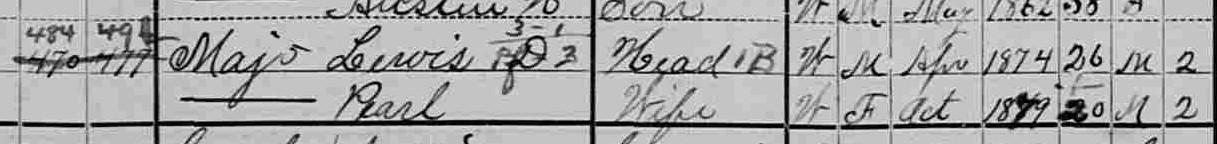 Son W M May 1862 38
484
470 477 Majo Lewis D Head B W M Apr 1874 26 M 2
Pearl Wife W F Oct 1879 20 M 2